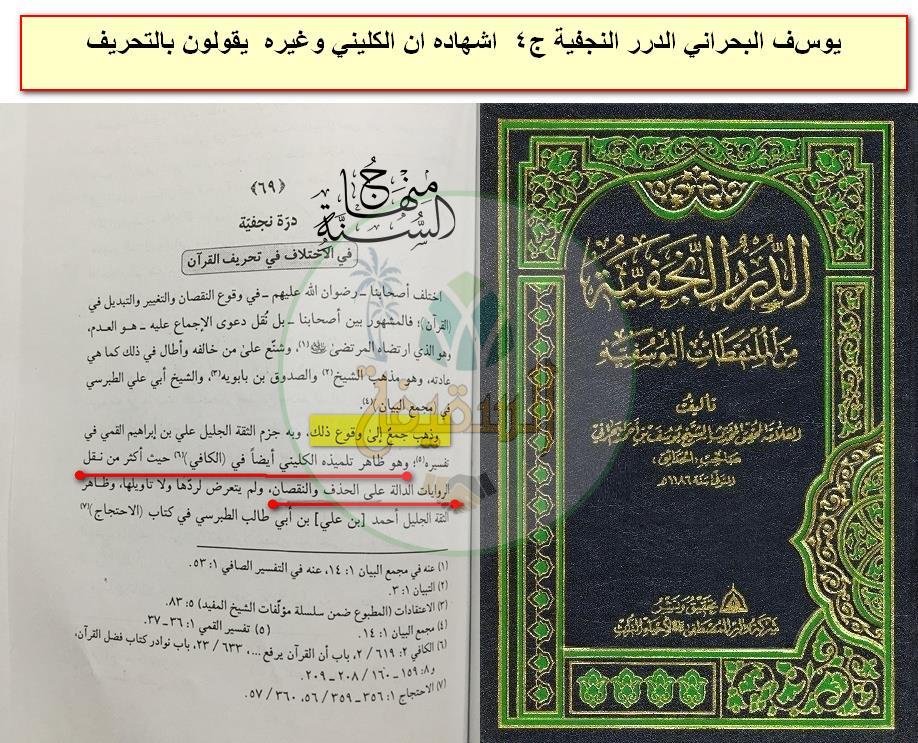 يوسف البحراني الدرر النجفية ج٤ اشهاده ان الكليني وغيره يقولون بالتحريف
منهاج
السنة
﴿٦٩﴾
درّة نجفيّة
في الاختلاف في تحريف القرآن
اختلف أصحابنا ـ رضوان الله عليهم ـ في وقوع النقصان والتغيير والتبديل في
(القرآن)؛ فالمشهور بين أصحابنا ـ بل نُقل دعوى الإجماع عليه ـ هو العدم،
وهو الذي ارتضاه المرتضىٰ ﷺ(١)، وشنّع علىٰ من خالفه وأطال في ذلك كما هي
عادته، وهو مذهب الشيخ(٢) والصدوق بن بابويه(٣)، والشيخ أبي علي الطبرسي
في (مجمع البيان)(٤).
وذهب جمعٌ إلىٰ وقوع ذلك، وبه جزم الثقة الجليل علي بن إبراهيم القمي في
تفسيره(٥)؛ وهو ظاهر تلميذه الكليني أيضاً في (الكافي)(٦) حيث أكثر من نقل
الروايات الدالة على الحذف والنقصان، ولم يتعرض لردّها ولا تأويلها، وظاهر
الثقة الجليل أحمد [بن علي] بن أبي طالب الطبرسي في كتاب (الاحتجاج)(٧)
(١) عنه في مجمع البيان ١: ١٤، عنه في التفسير الصافي ١: ٥٣.
(٢) التبيان ١: ٣.
(٣) الاعتقادات (المطبوع ضمن سلسلة مؤلّفات الشيخ المفيد) ٥: ٨٣.
(٤) مجمع البيان ١: ١٤. (٥) تفسير القمي ١: ٣٦ ـ ٣٧.
(٦) الكافي ٢: ٦١٩ / ٢، باب أن القرآن يرفع...، ٦٣٣ / ٢٣، باب نوادر كتاب فضل القرآن،
و٨: ١٥٩ ـ ١٦٠ / ٢٠٨ ـ ٢٠٩.
(٧) الاحتجاج ١: ٣٥٦ ـ ٣٥٩ / ٥٦، ٣٦٠ / ٥٧.
الدُّرَرُ النَّجَفِيَّة
مِنَ المُلتَقَطَاتِ اليُوسُفِيَّة
تأليف
العلامة المحقق المحدث الشيخ يوسف بن أحمد البحراني
صاحب الحدائق
المتوفى سنة ١١٨٦هـ
تحقيق ونشر
شركة دار المصطفى ﷺ لإحياء التراث